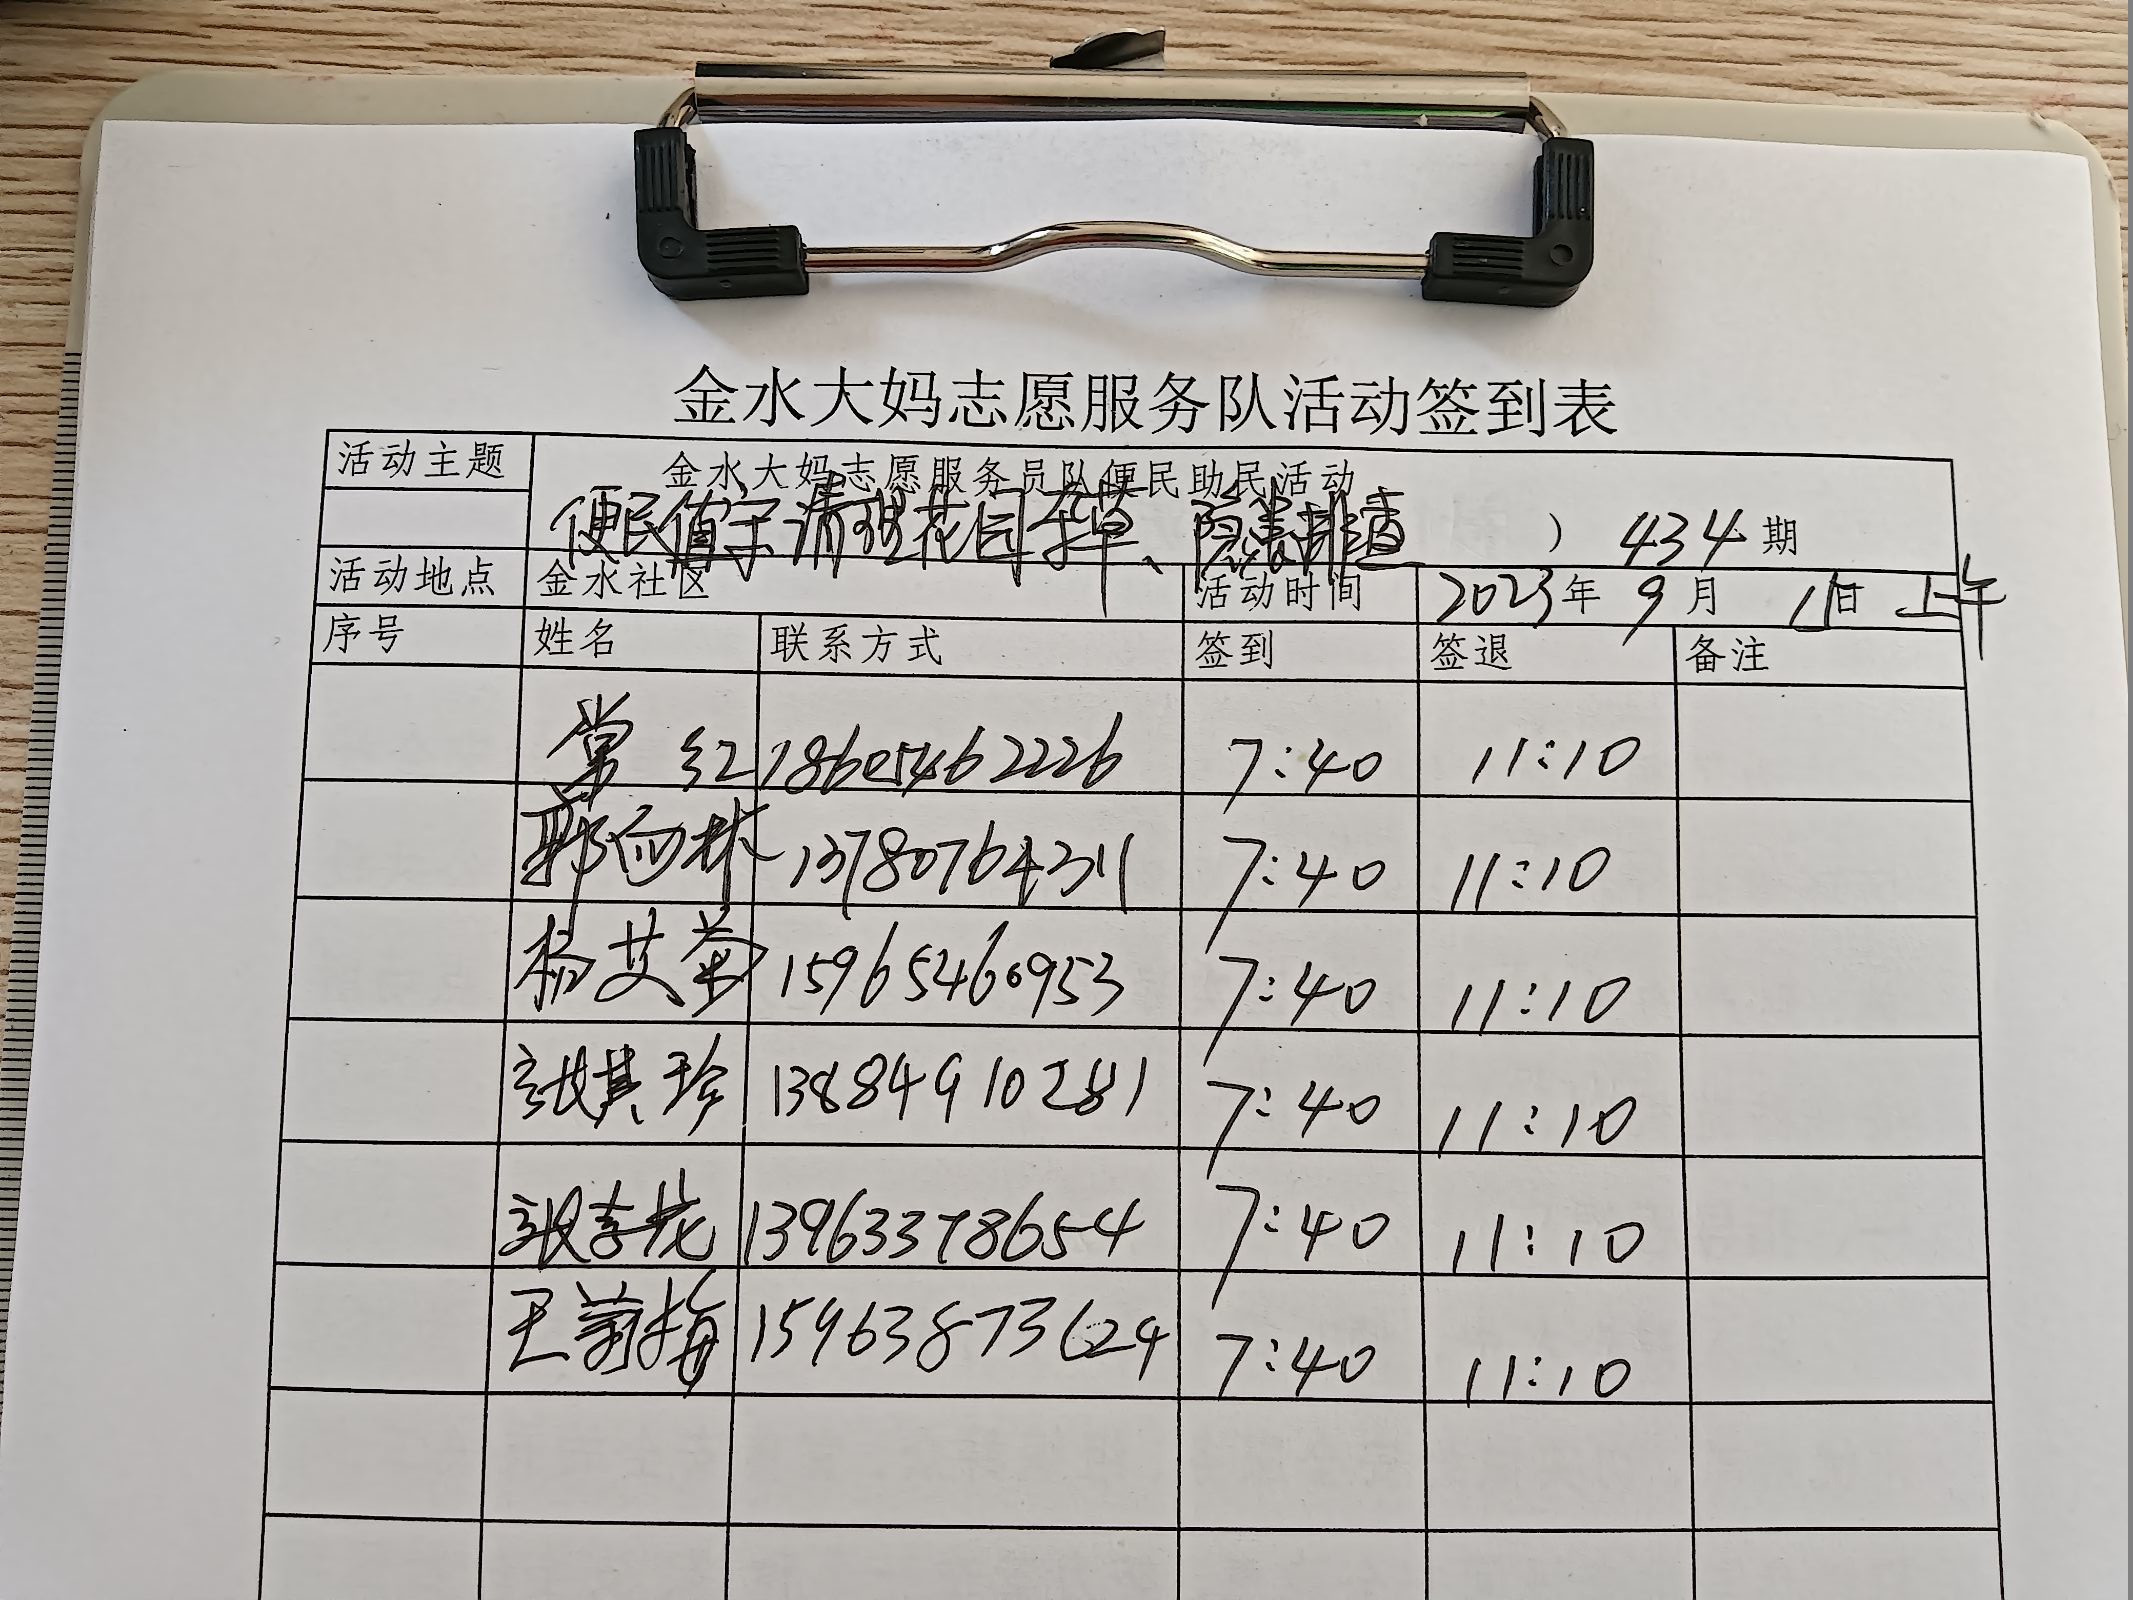 金水大妈志愿服务队活动签到表
活动主题 金水大妈志愿服务员队便民助民活动
便民值守 清理花园杂草、隐患排查 ） 434期
活动地点 金水社区 活动时间 2023年9月1日 上午
序号 姓名 联系方式 签到 签退 备注
常红 18605462226 7:40 11:10
郭向林 13780764311 7:40 11:10
杨艾菊 15965460953 7:40 11:10
张其珍 13884910281 7:40 11:10
张 13963378654 7:40 11:10
王菊梅 15963873624 7:40 11:10